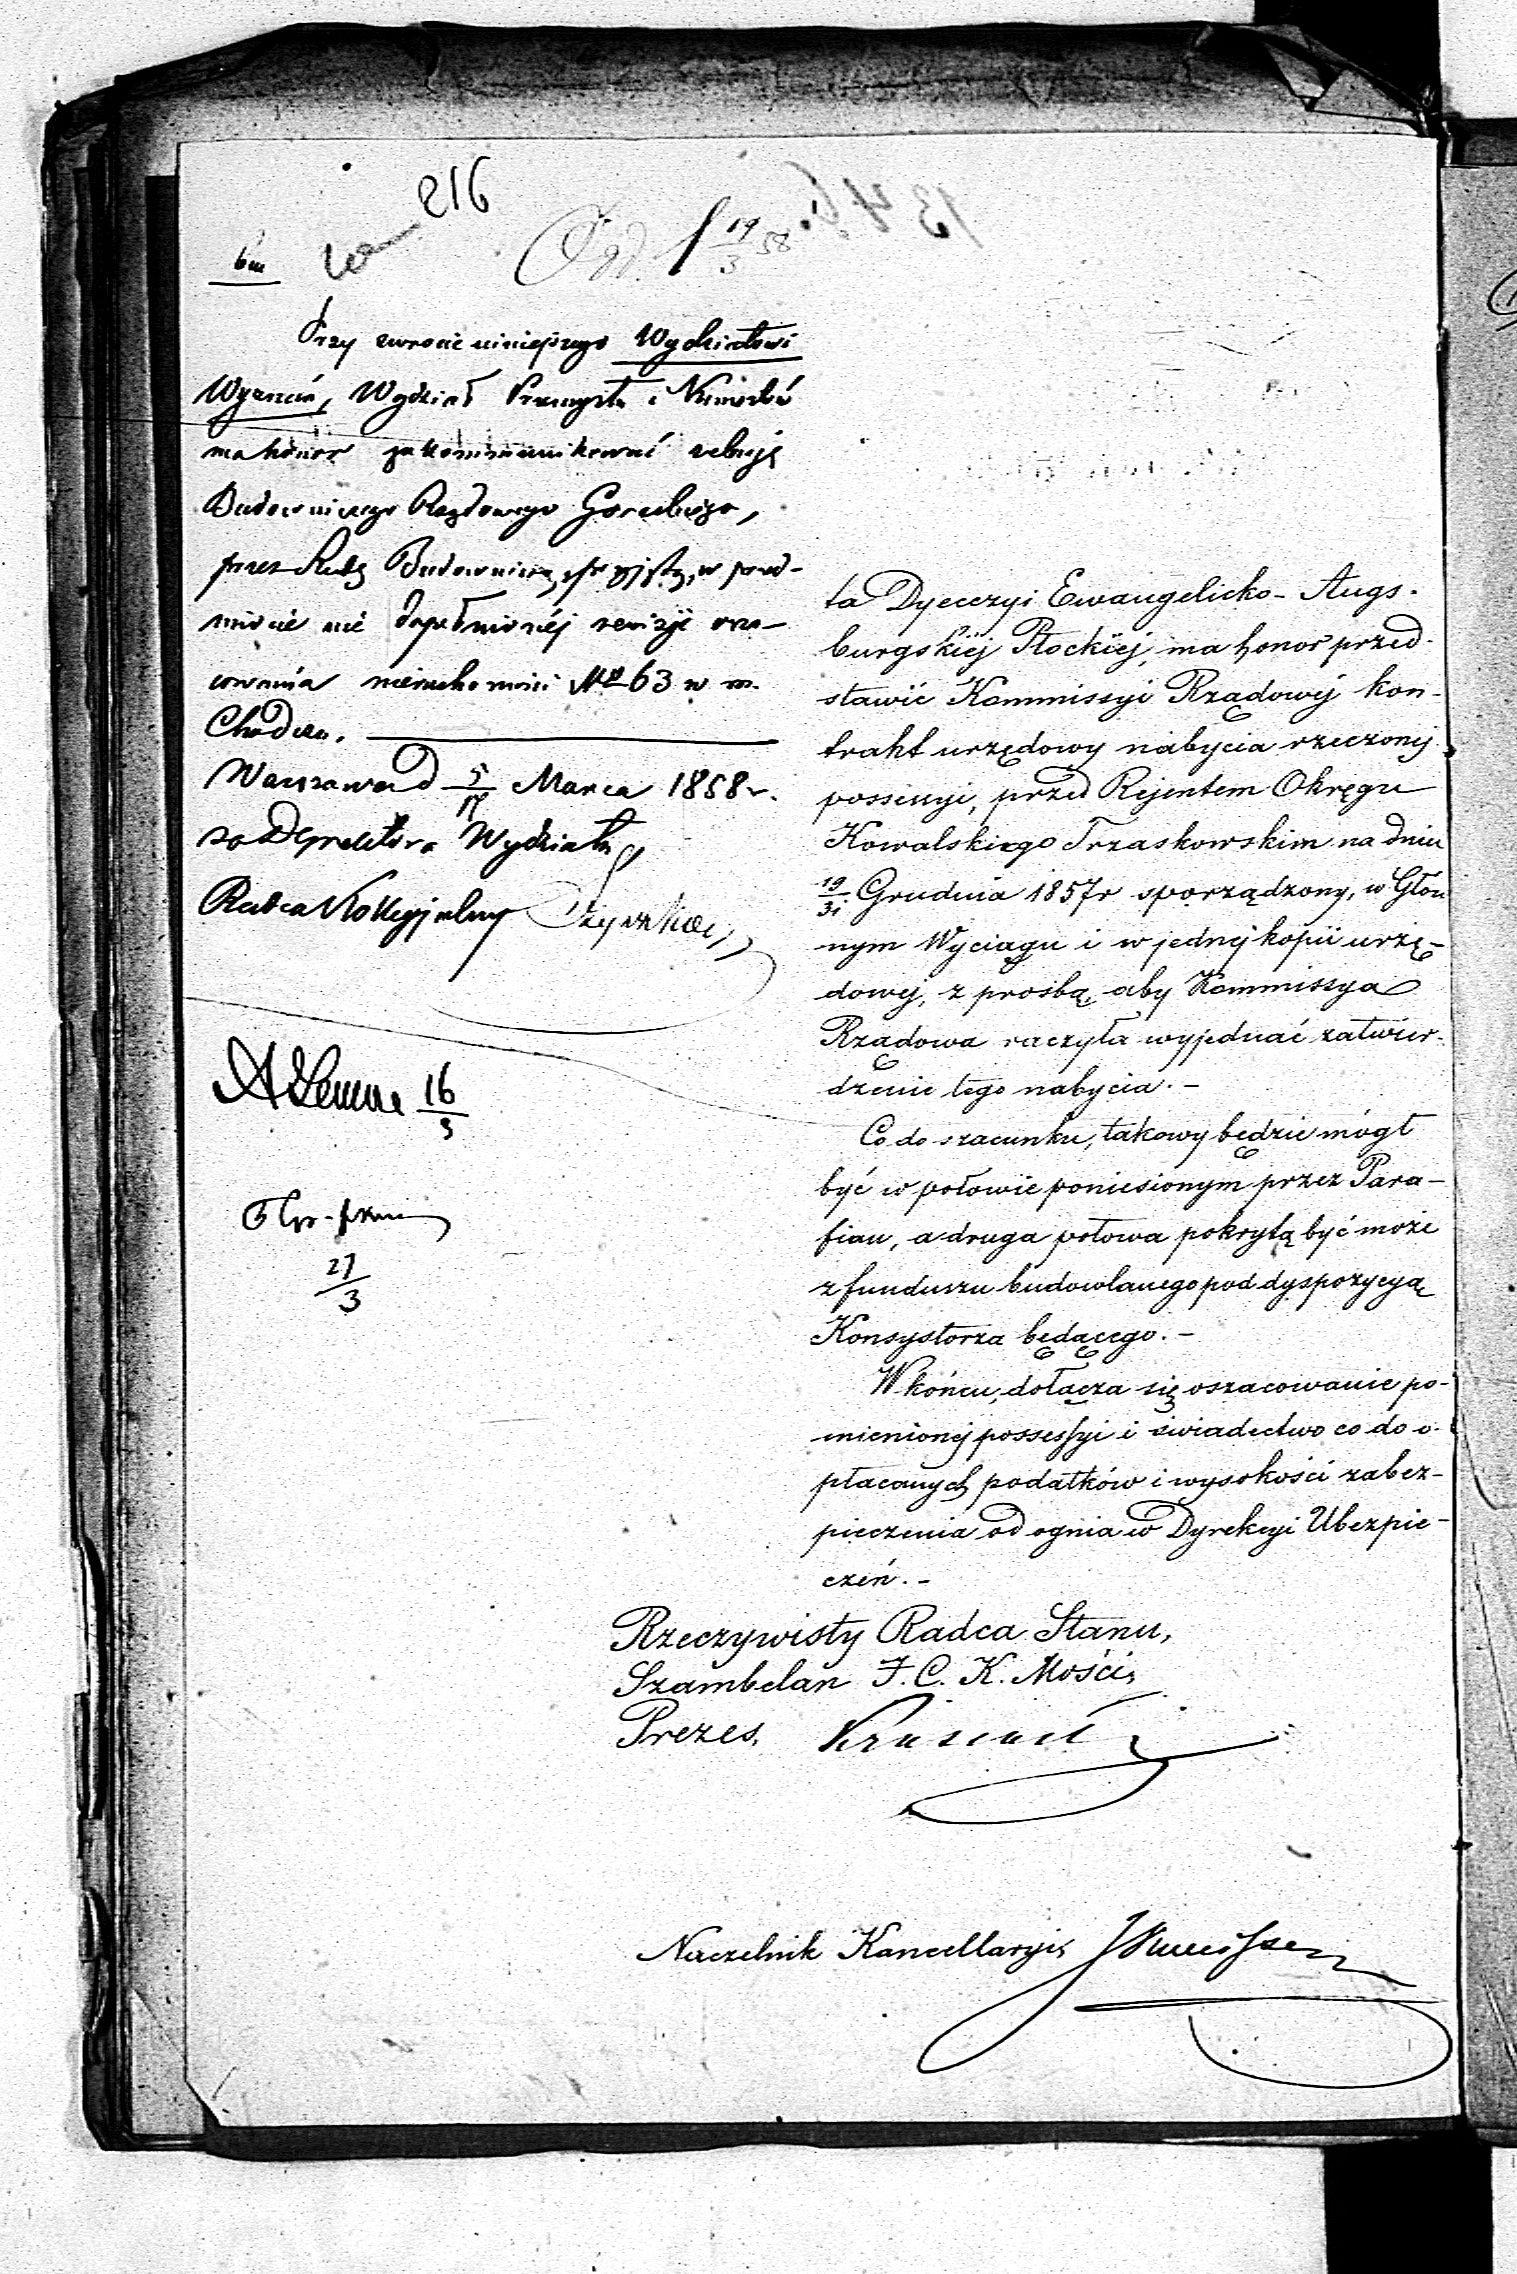 216
19/3 58
Przy zwrocie niniejszego Wydziałowi
Wyznań, Wydział Przemysłu i Kunsztów
ma honor zakommunikować relacyję
Budowniczego Rządowego
przez Radę Budowniczą przyjętą, w przed-
miocie nie dopełnionéj rewizji osza-
cowania nieruchomości No 63 w m.
Chodczu.
Warszawa d 5/17 Marca 1858 r.
za Dyrektora Wydziału,
Radca Kollegjalny
16/3
27/3
ta Dyecezyi Ewangelicko-Augs-
burgskiéj Płockiéj, ma honor przed-
stawić Kommissyi Rządowéj kon-
trakt urzędowy nabycia rzeczonéj
possessyi, przed Rejentem Okręgu
Kowalskiego Trzaskowskim na dniu
19/31 Grudnia 1857 r sporządzony, w Głów
nym Wyciągu i w jednéj kopii urzę-
dowej, z prośbą, aby Kommissya
Rządowa raczyła wyjednać zatwier-
dzenie tego nabycia.-
Co do szacunku, takowy będzie mógł
być w połowie poniesionym przez Para-
fian, a druga połowa pokrytą być może
z funduszu budowlanego pod dyspozycyą
Konsystorza będącego.-
W końcu, dołącza się oszacowanie po-
mienionéj possessyi i świadectwo co do o-
płacanych podatków i wysokości zabez-
pieczenia od ognia w Dyrekcyi Ubezpie-
czeń.-
Rzeczywisty Radca Stanu,
Szambelan J. C. K. Mości,
Prezes,
Naczelnik Kancellaryi,